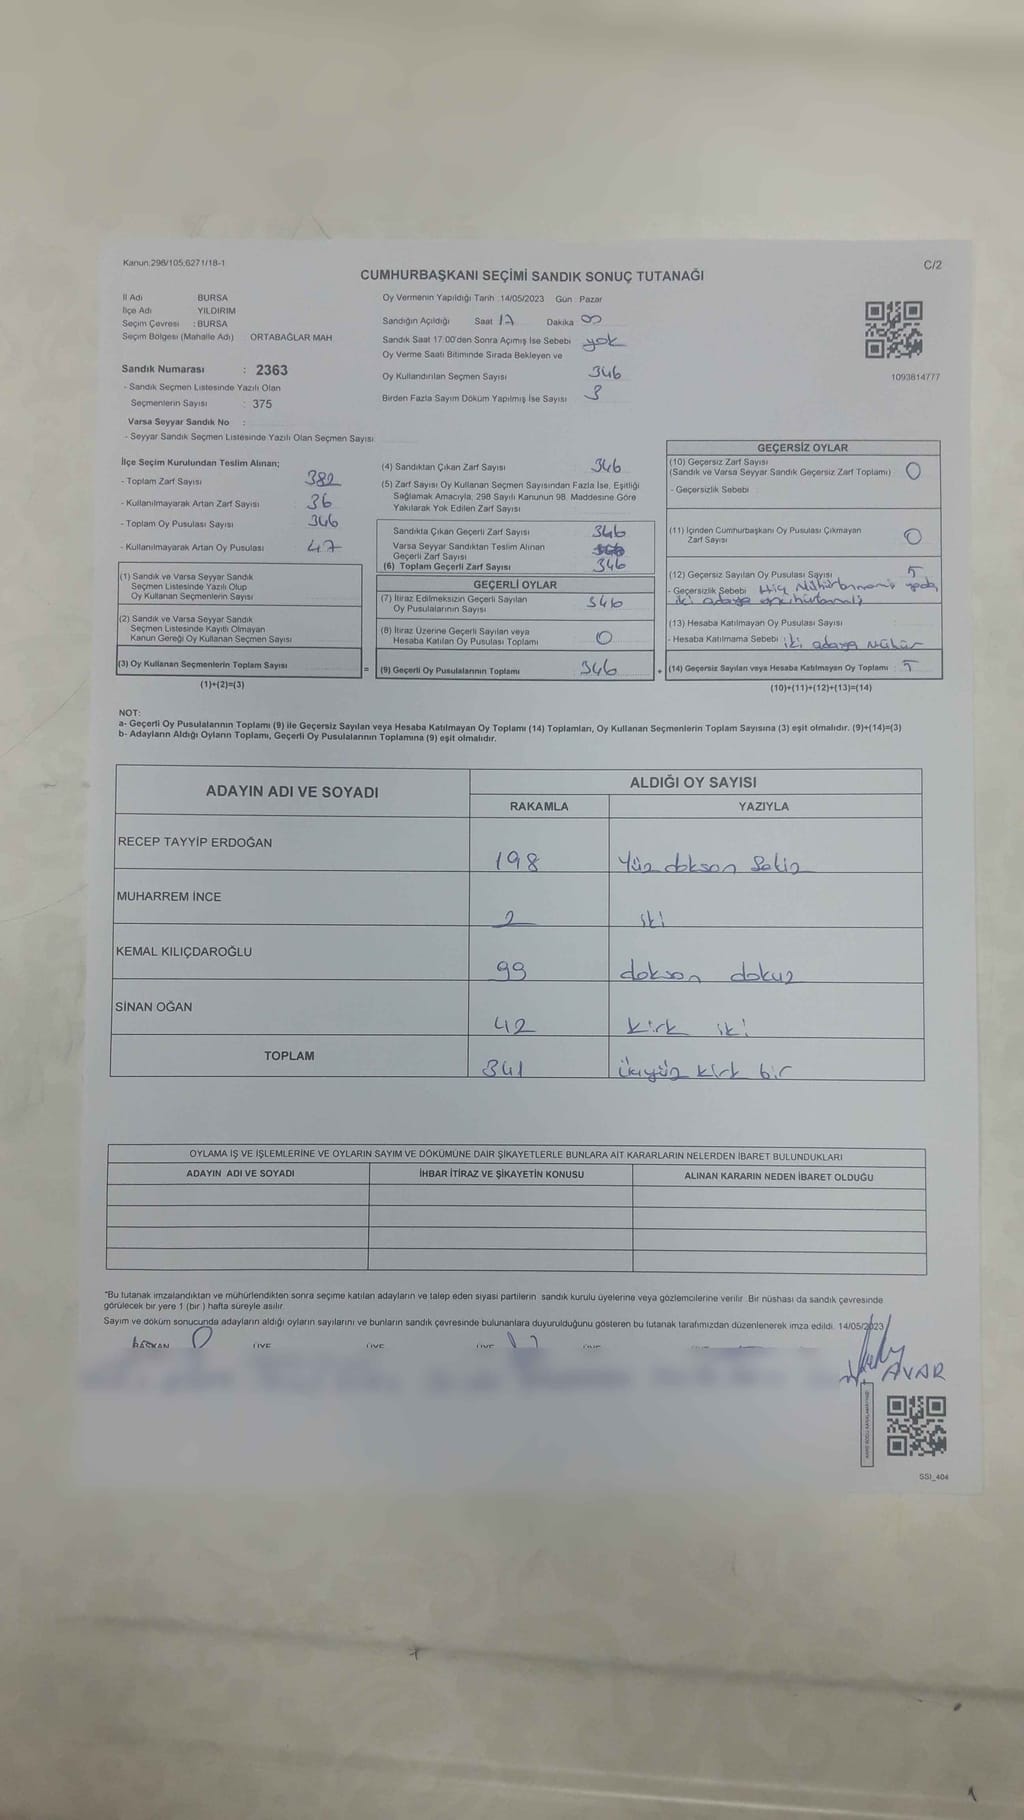 Kanun:298/105;6271/18-1
C/2
CUMHURBAŞKANI SEÇİMİ SANDIK SONUÇ TUTANAĞI
İl Adı BURSA
İlçe Adı YILDIRIM
Seçim Çevresi : BURSA
Seçim Bölgesi (Mahalle Adı) ORTABAĞLAR MAH
Sandık Numarası : 2363
- Sandık Seçmen Listesinde Yazılı Olan
Seçmenlerin Sayısı : 375
Varsa Seyyar Sandık No :
- Seyyar Sandık Seçmen Listesinde Yazılı Olan Seçmen Sayısı
Oy Vermenin Yapıldığı Tarih :14/05/2023 Gün : Pazar
Sandığın Açıldığı Saat 17 Dakika 00
Sandık Saat 17:00'den Sonra Açılmış İse Sebebi yok
Oy Verme Saati Bitiminde Sırada Bekleyen ve
Oy Kullandırılan Seçmen Sayısı 346
Birden Fazla Sayım Döküm Yapılmış İse Sayısı 3
1093814777
İlçe Seçim Kurulundan Teslim Alınan;
- Toplam Zarf Sayısı 382
- Kullanılmayarak Artan Zarf Sayısı 36
- Toplam Oy Pusulası Sayısı 346
- Kullanılmayarak Artan Oy Pusulası 47
(1) Sandık ve Varsa Seyyar Sandık
Seçmen Listesinde Yazılı Olup
Oy Kullanan Seçmenlerin Sayısı
(2) Sandık ve Varsa Seyyar Sandık
Seçmen Listesinde Kayıtlı Olmayan
Kanun Gereği Oy Kullanan Seçmen Sayısı
(3) Oy Kullanan Seçmenlerin Toplam Sayısı
(1)+(2)=(3)
(4) Sandıktan Çıkan Zarf Sayısı 346
(5) Zarf Sayısı Oy Kullanan Seçmen Sayısından Fazla İse, Eşitliği
Sağlamak Amacıyla, 298 Sayılı Kanunun 98. Maddesine Göre
Yakılarak Yok Edilen Zarf Sayısı
Sandıkta Çıkan Geçerli Zarf Sayısı 346
Varsa Seyyar Sandıktan Teslim Alınan
Geçerli Zarf Sayısı
(6) Toplam Geçerli Zarf Sayısı 346
GEÇERLİ OYLAR
(7) İtiraz Edilmeksizin Geçerli Sayılan
Oy Pusulalarının Sayısı 346
(8) İtiraz Üzerine Geçerli Sayılan veya
Hesaba Katılan Oy Pusulası Toplamı 0
= (9) Geçerli Oy Pusulalarının Toplamı 346
GEÇERSİZ OYLAR
(10) Geçersiz Zarf Sayısı
(Sandık ve Varsa Seyyar Sandık Geçersiz Zarf Toplamı) 0
- Geçersizlik Sebebi
(11) İçinden Cumhurbaşkanı Oy Pusulası Çıkmayan
Zarf Sayısı 0
(12) Geçersiz Sayılan Oy Pusulası Sayısı 5
- Geçersizlik Sebebi Hiç
iki adaya
(13) Hesaba Katılmayan Oy Pusulası Sayısı
- Hesaba Katılmama Sebebi : iki adaya mühür
+ (14) Geçersiz Sayılan veya Hesaba Katılmayan Oy Toplamı : 5
(10)+(11)+(12)+(13)=(14)
NOT:
a- Geçerli Oy Pusulalarının Toplamı (9) ile Geçersiz Sayılan veya Hesaba Katılmayan Oy Toplamı (14) Toplamları, Oy Kullanan Seçmenlerin Toplam Sayısına (3) eşit olmalıdır. (9)+(14)=(3)
b- Adayların Aldığı Oyların Toplamı, Geçerli Oy Pusulalarının Toplamına (9) eşit olmalıdır.
ADAYIN ADI VE SOYADI
ALDIĞI OY SAYISI
RAKAMLA YAZIYLA
RECEP TAYYİP ERDOĞAN 198 Yüz dokson Sekiz
MUHARREM İNCE 2 iki
KEMAL KILIÇDAROĞLU 99 dokson dokuz
SİNAN OĞAN 42 kırk iki
TOPLAM 341 kırk bir
OYLAMA İŞ VE İŞLEMLERİNE VE OYLARIN SAYIM VE DÖKÜMÜNE DAİR ŞİKAYETLERLE BUNLARA AİT KARARLARIN NELERDEN İBARET BULUNDUKLARI
ADAYIN ADI VE SOYADI İHBAR İTİRAZ VE ŞİKAYETİN KONUSU ALINAN KARARIN NEDEN İBARET OLDUĞU
*Bu tutanak imzalandıktan ve mühürlendikten sonra seçime katılan adayların ve talep eden siyasi partilerin sandık kurulu üyelerine veya gözlemcilerine verilir. Bir nüshası da sandık çevresinde
görülecek bir yere 1 (bir ) hafta süreyle asılır.
Sayım ve döküm sonucunda adayların aldığı oyların sayılarını ve bunların sandık çevresinde bulunanlara duyurulduğunu gösteren bu tutanak tarafımızdan düzenlenerek imza edildi. 14/05/2023
BAŞKAN ÜYE ÜYE ÜYE ÜYE
AVAR
SSI_404